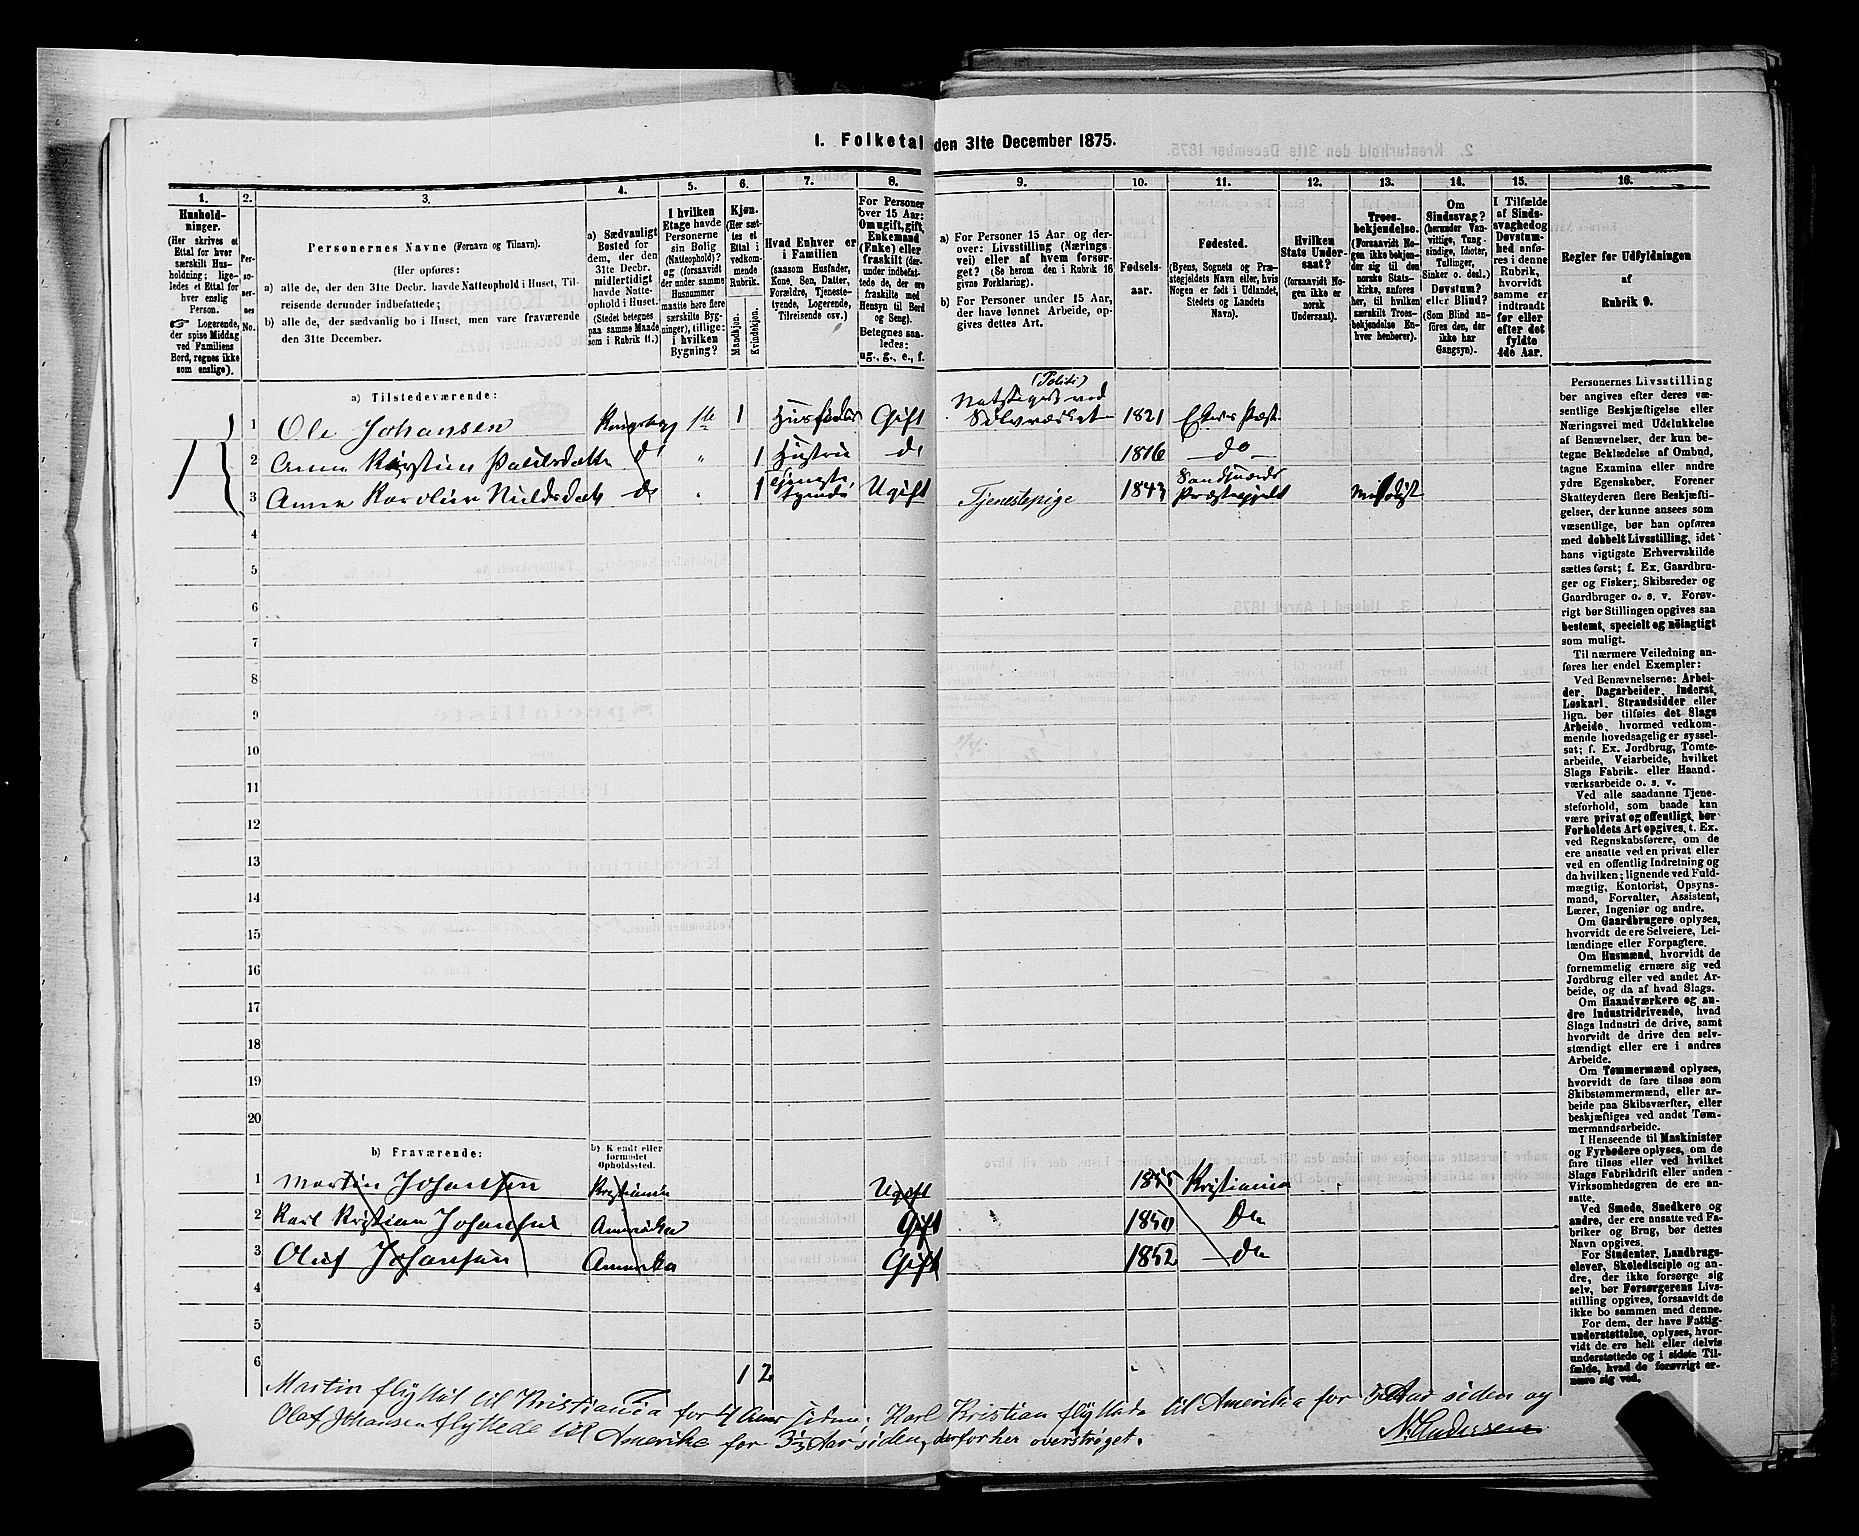 1. Folketal den 31te December 1875.
1. 2. 3. 4. 5. 6. 7. 8. 9. 10. 11. 12. 13. 14. 15. 16.
Hushold-
ninger.
(Her skrives et
Ettal for hver
særskilt Hus-
holdning; lige-
ledes et Ettal for
hver enslig
Person.
☞ Logerende,
der spise Middag
ved Familiens
Bord, regnes ikke
som enslige).
Per-
so-
ner-
nes
No.
Personernes Navne (Fornavn og Tilnavn).
(Her opføres:
a) alle de, der den 31te Decbr. havde Natteophold i Huset, Til-
reisende derunder indbefattede;
b) alle de, der sædvanlig bo i Huset, men vare fraværende
den 31te December.
a) Sædvanligt
Bosted for
dem, der den
31te Decbr.
midlertidigt
havde Natte-
ophold i Huset.
(Stedet betegnes
paa samme Maade
som i Rubrik 11.)
I hvilken
Etage havde
Personerne
sin Bolig
(Natteophold)?
og (forsaavidt
der under samme
Husnummer
maatte høre flere
særskilte Byg-
ninger), tillige:
i hvilken
Bygning?
Kjøn.
(Her sæt-
tes et
Ettal i
vedkom-
mende
Rubrik.
Mandkjøn.
Kvindekjøn.
Hvad Enhver er
i Familien
(saasom Husfader,
Kone, Søn, Datter,
Forældre, Tjeneste-
tyende, Logerende,
Tilreisende osv.)
For Personer
over 15 Aar:
Om ugift, gift,
Enkemand
(Enke) eller
fraskilt (der-
under indbefat-
tede de, der ere
fraskilte med
Hensyn til Bord
og Seng).
Betegnes saa-
ledes:
ug., g., e., f.
a) For Personer 15 Aar og der-
over: Livsstilling (Nærings
vei) eller af hvem forsør-
get? (Se herom den i Rubrik 16
givne Forklaring).
b) For Personer under 15 Aar,
der have lønnet Arbeide, op-
gives dettes Art.
Fødsels-
aar.
Fødested.
(Byens, Sognets og Præ-
stegjeldets Navn eller, hvis
Nogen er født i Udlandet,
Stedets og Landets
Navn).
Hvilken
Stats Under-
saat?
(forsaavidt No-
gen ikke er
norsk
Undersaat).
Troes-
bekjendelse.
(Forsaavidt No-
gen ikke bekjen-
der sig til den
norske Stats-
kirke, anføres
her, til hvilken
særskilt Troes-
bekjendelse En-
hver henhører).
Om
Sindssvag?
(herunder Van-
vittige, Tung-
sindige, Idioter,
Tullinger,
Sinker o. desl.)
Døvstum?
eller Blind?
(Som Blind an-
føres den, der
ikke har
Gangsyn).
I Tilfælde
af Sinds-
svaghed og
Døvstum-
hed anfø-
res i denne
Rubrik,
hvorvidt
samme er
indtraadt
før eller
efter det
fyldte
4de Aar.
Regler for Udfyldningen
af
Rubrik 9.
a) Tilstedeværende:
(Politi)
1 Ole Johansen Kongsberg 1ste 1 Husfader Gift Sølvværket 1821 Eker Præst
2 Anne Kirstine Paulsdatte do " 1 Hustru do 1816 do
3 Anne Karoline Nieldsdate do " 1 Tjeneste- tyende Ugift Tjenestepige 1843 Sandsværds Præstegjeld Metodist
4
5
6
7
8
9
10
11
12
13
14
15
16
17
18
19
20
b) Fraværende:
b) Kjendt eller
formodet
Opholdssted.
1 Martin Johansen Kristiania Ugift 1855 Kristiania
2 Karl Kristian Johansen Amerika Gift 1850 Do
3 Oluf Johansen Amerika Gift 1852 do
4
5
6
1 2
Martin flyttet til Kristiania for 4 Aar siden; Karl Kristian flyttede til Amerika for 5 Aar siden og
Olaf Johansen flyttede til Amerika for 3½ Aar siden, derfor her overstrøget.
N. Andersen
Personernes Livsstilling
bør angives efter deres væ-
sentlige Beskjæftigelse eller
Næringsvei med Udelukkelse
af Benævnelser, der kun be-
tegne Beklædelse af Ombud,
tagne Examina eller andre
ydre Egenskaber. Forener
Skatteyderen flere Beskjæfti-
gelser, der kunne ansees som
væsentlige, bør han opføres
med dobbelt Livsstilling, idet
hans vigtigste Erhvervskilde
sættes først; f. Ex. Gaardbru-
ger og Fisker; Skibsreder og
Gaardbruger o. s. v. Forøv-
rigt bør Stillingen opgives saa
bestemt, specielt og nöiagtigt
som muligt.
Til nærmere Veiledning an-
føres her endel Exempler:
Ved Benævnelserne: Arbei-
der, Dagarbeider, Inderst,
Løskarl, Strandsidder eller
lign. bør tilføies det Slags
Arbeide, hvormed vedkom-
mende hovedsagelig er syssel-
sat; f. Ex. Jordbrug, Tomte-
arbeide, Veiarbeide, hvilket
Slags Fabrik- eller Haand-
værksarbeide o. s. v.
Ved alle saadanne Tjene-
steforhold, som baade kan
være privat og offentligt, bør
Forholdets Art opgives, t. Ex.
ved Regnskabsførere, om de
ere ansatte ved en privat eller
ved en offentlig Indretning og
da hvilken; lignende ved Fuld-
mægtig, Kontorist, Opsyns-
mand, Forvalter, Assistent,
Lærer, Ingeniør og andre.
Om Gaardbrugere oplyses,
hvorvidt de ere Selveiere, Lei-
lændinge eller Forpagtere.
Om Husmænd, hvorvidt de
fornemmelig ernære sig ved
Jordbrug eller ved andet Ar-
beide, og da af hvad Slags.
Om Haandværkere og an-
dre Industridrivende, hvad
Slags Industri de drive, samt
hvorvidt de drive den selv-
stændigt eller ere i andres
Arbeide.
Om Tømmermænd oplyses,
hvorvidt de fare tilsøs som
Skibstømmermænd, eller ar-
beide paa Skibsværfter, eller
beskjæftiges ved andet Tøm-
mermandsarbeide.
I Henseende til Maskinister
og Fyrbødere oplyses, om de
fare tilsøs eller ved hvilket
Slags Fabrikdrift eller anden
Virksomhedsgren de ere an-
satte.
Ved Smede, Snedkere og
andre, der ere ansatte ved Fa-
briker og Brug, bør deres
Navn opgives.
For Studenter, Landbrugs-
elever, Skoledisciple og an-
dre, der ikke forsørge sig
selv, bør Forsørgerens Livs-
stilling opgives, forsaavidt de
ikke bo sammen med denne.
For dem, der have Fattig-
understøttelse, oplyses, hvor-
vidt de ere helt eller delvis
understøttede og i sidste Til-
fælde, hvad de forøvrigt er-
nære sig ved.